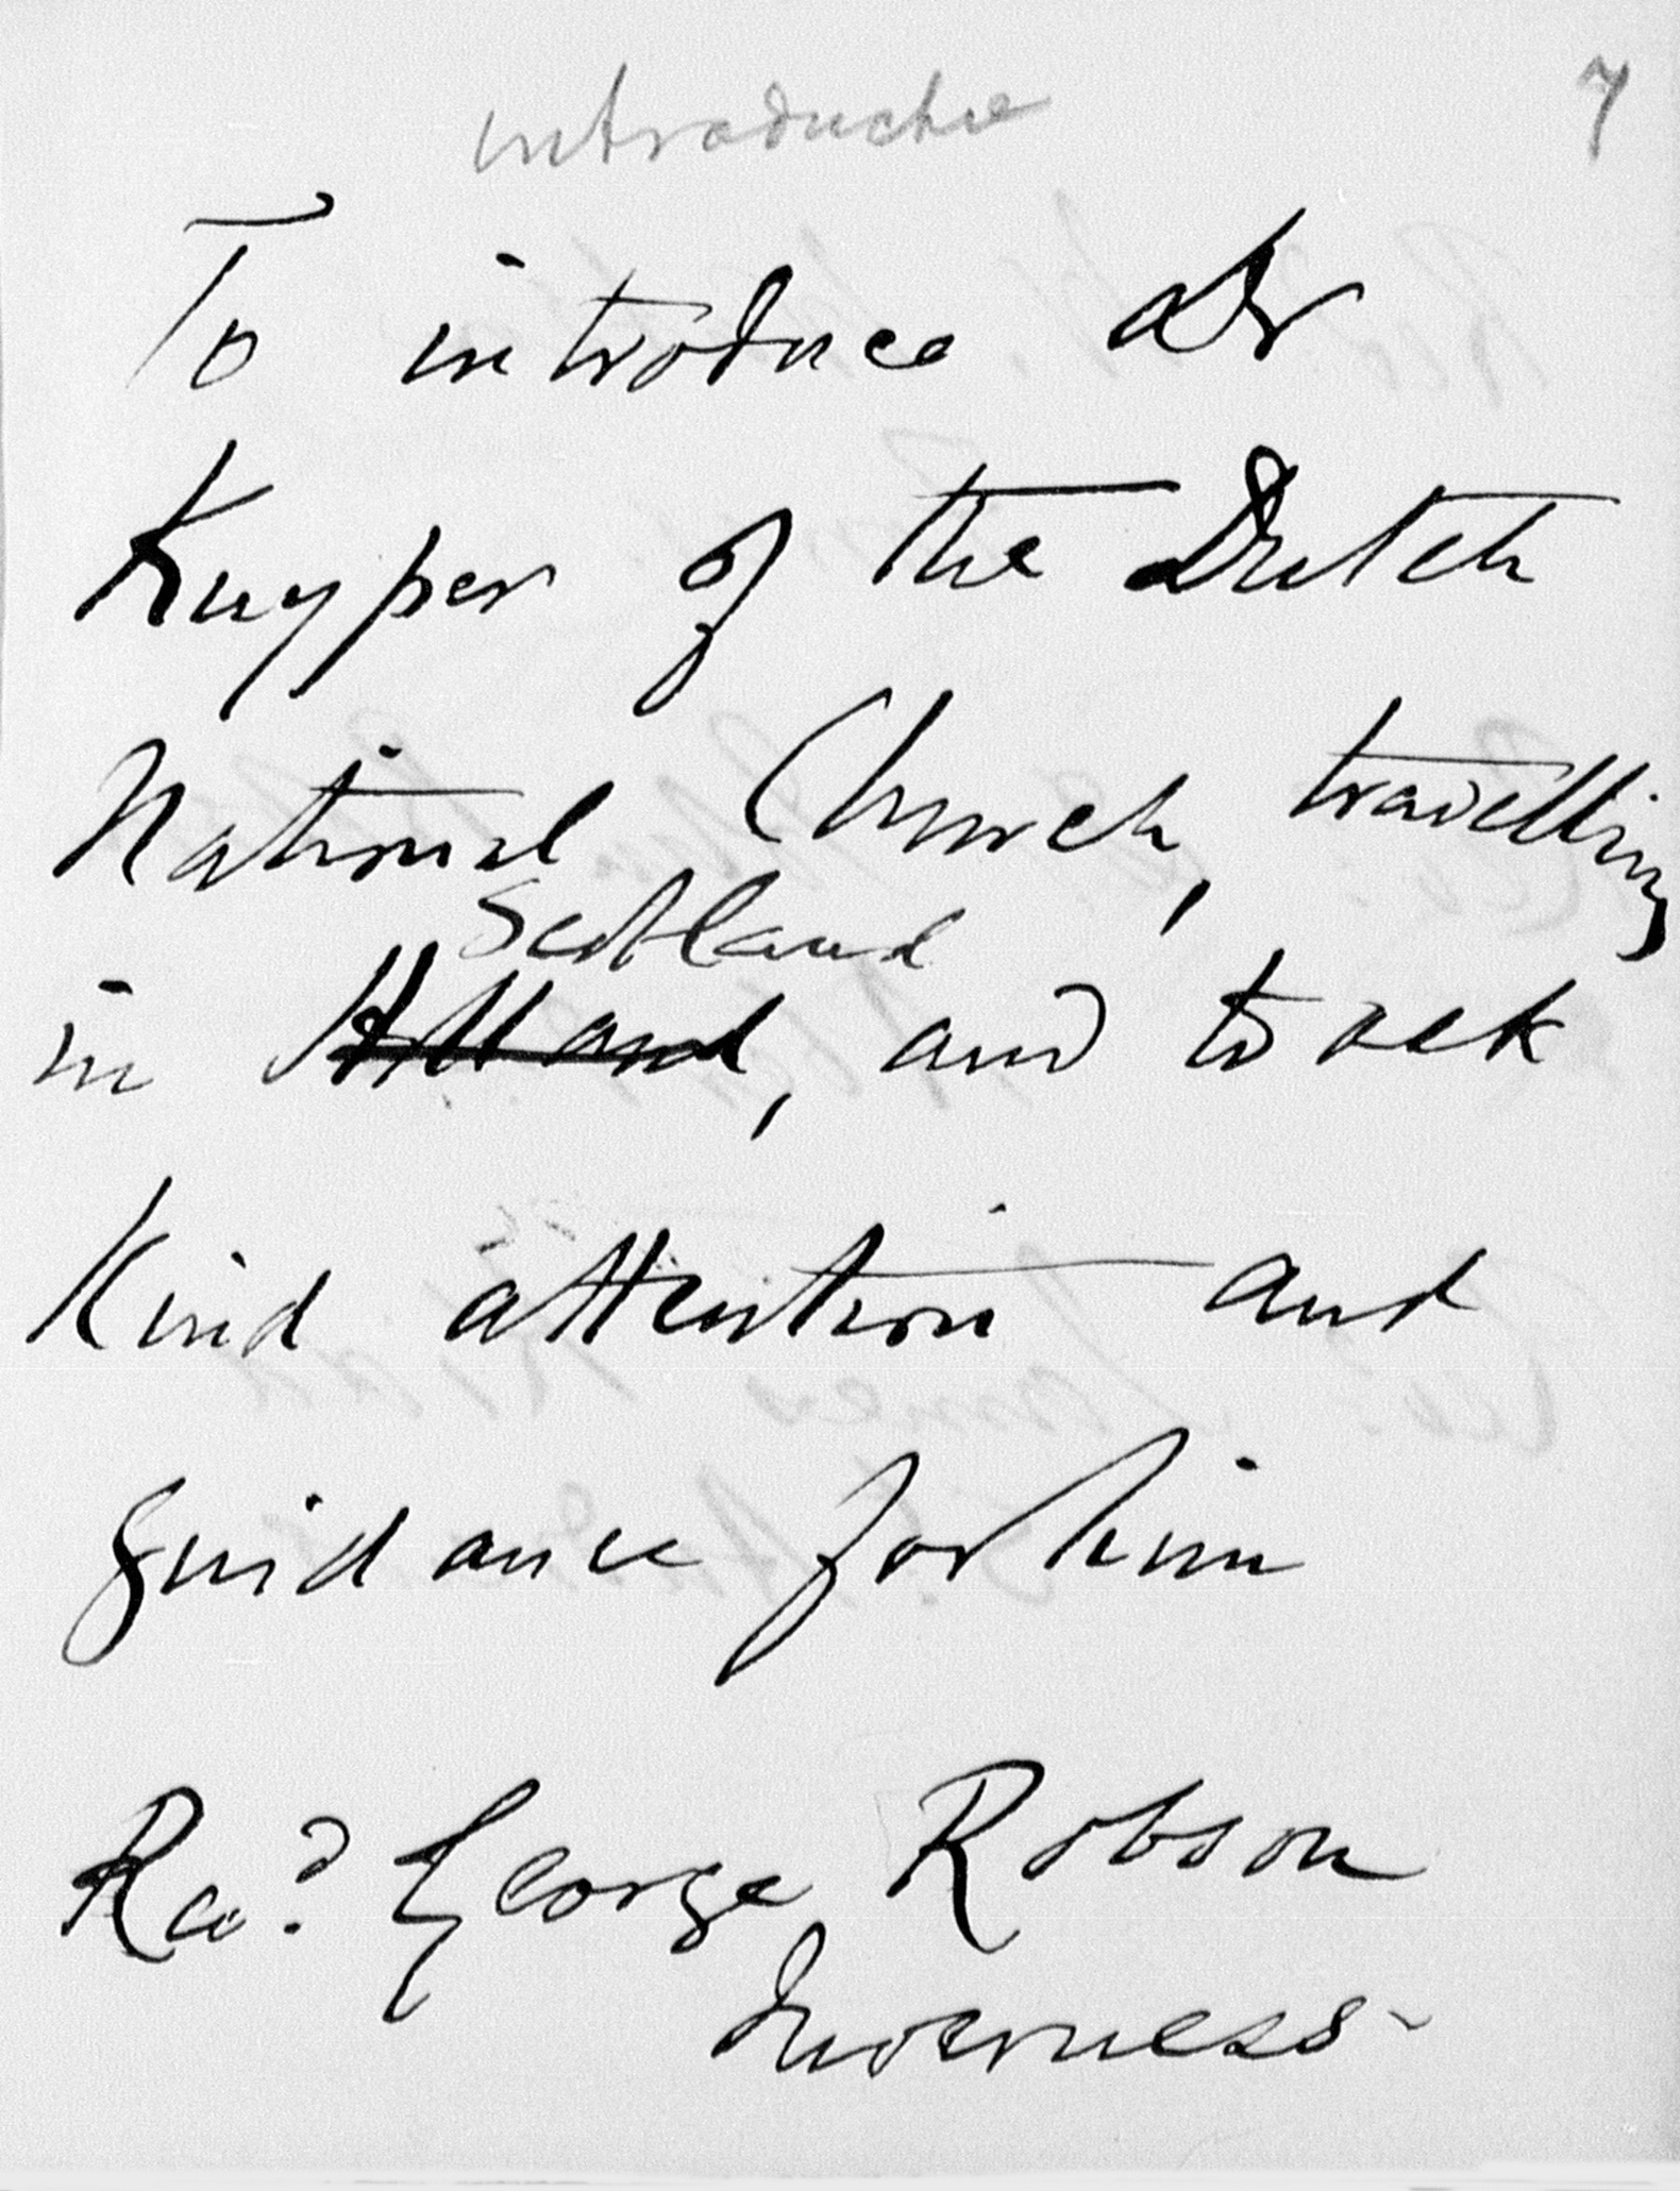 introductie
7
To introduce Dr
Kuyper of the Dutch
National Church, travelling
Scotland
in Holland, and to ask
Kind attention and
guidance for him
Revd. George Robson
Inverness